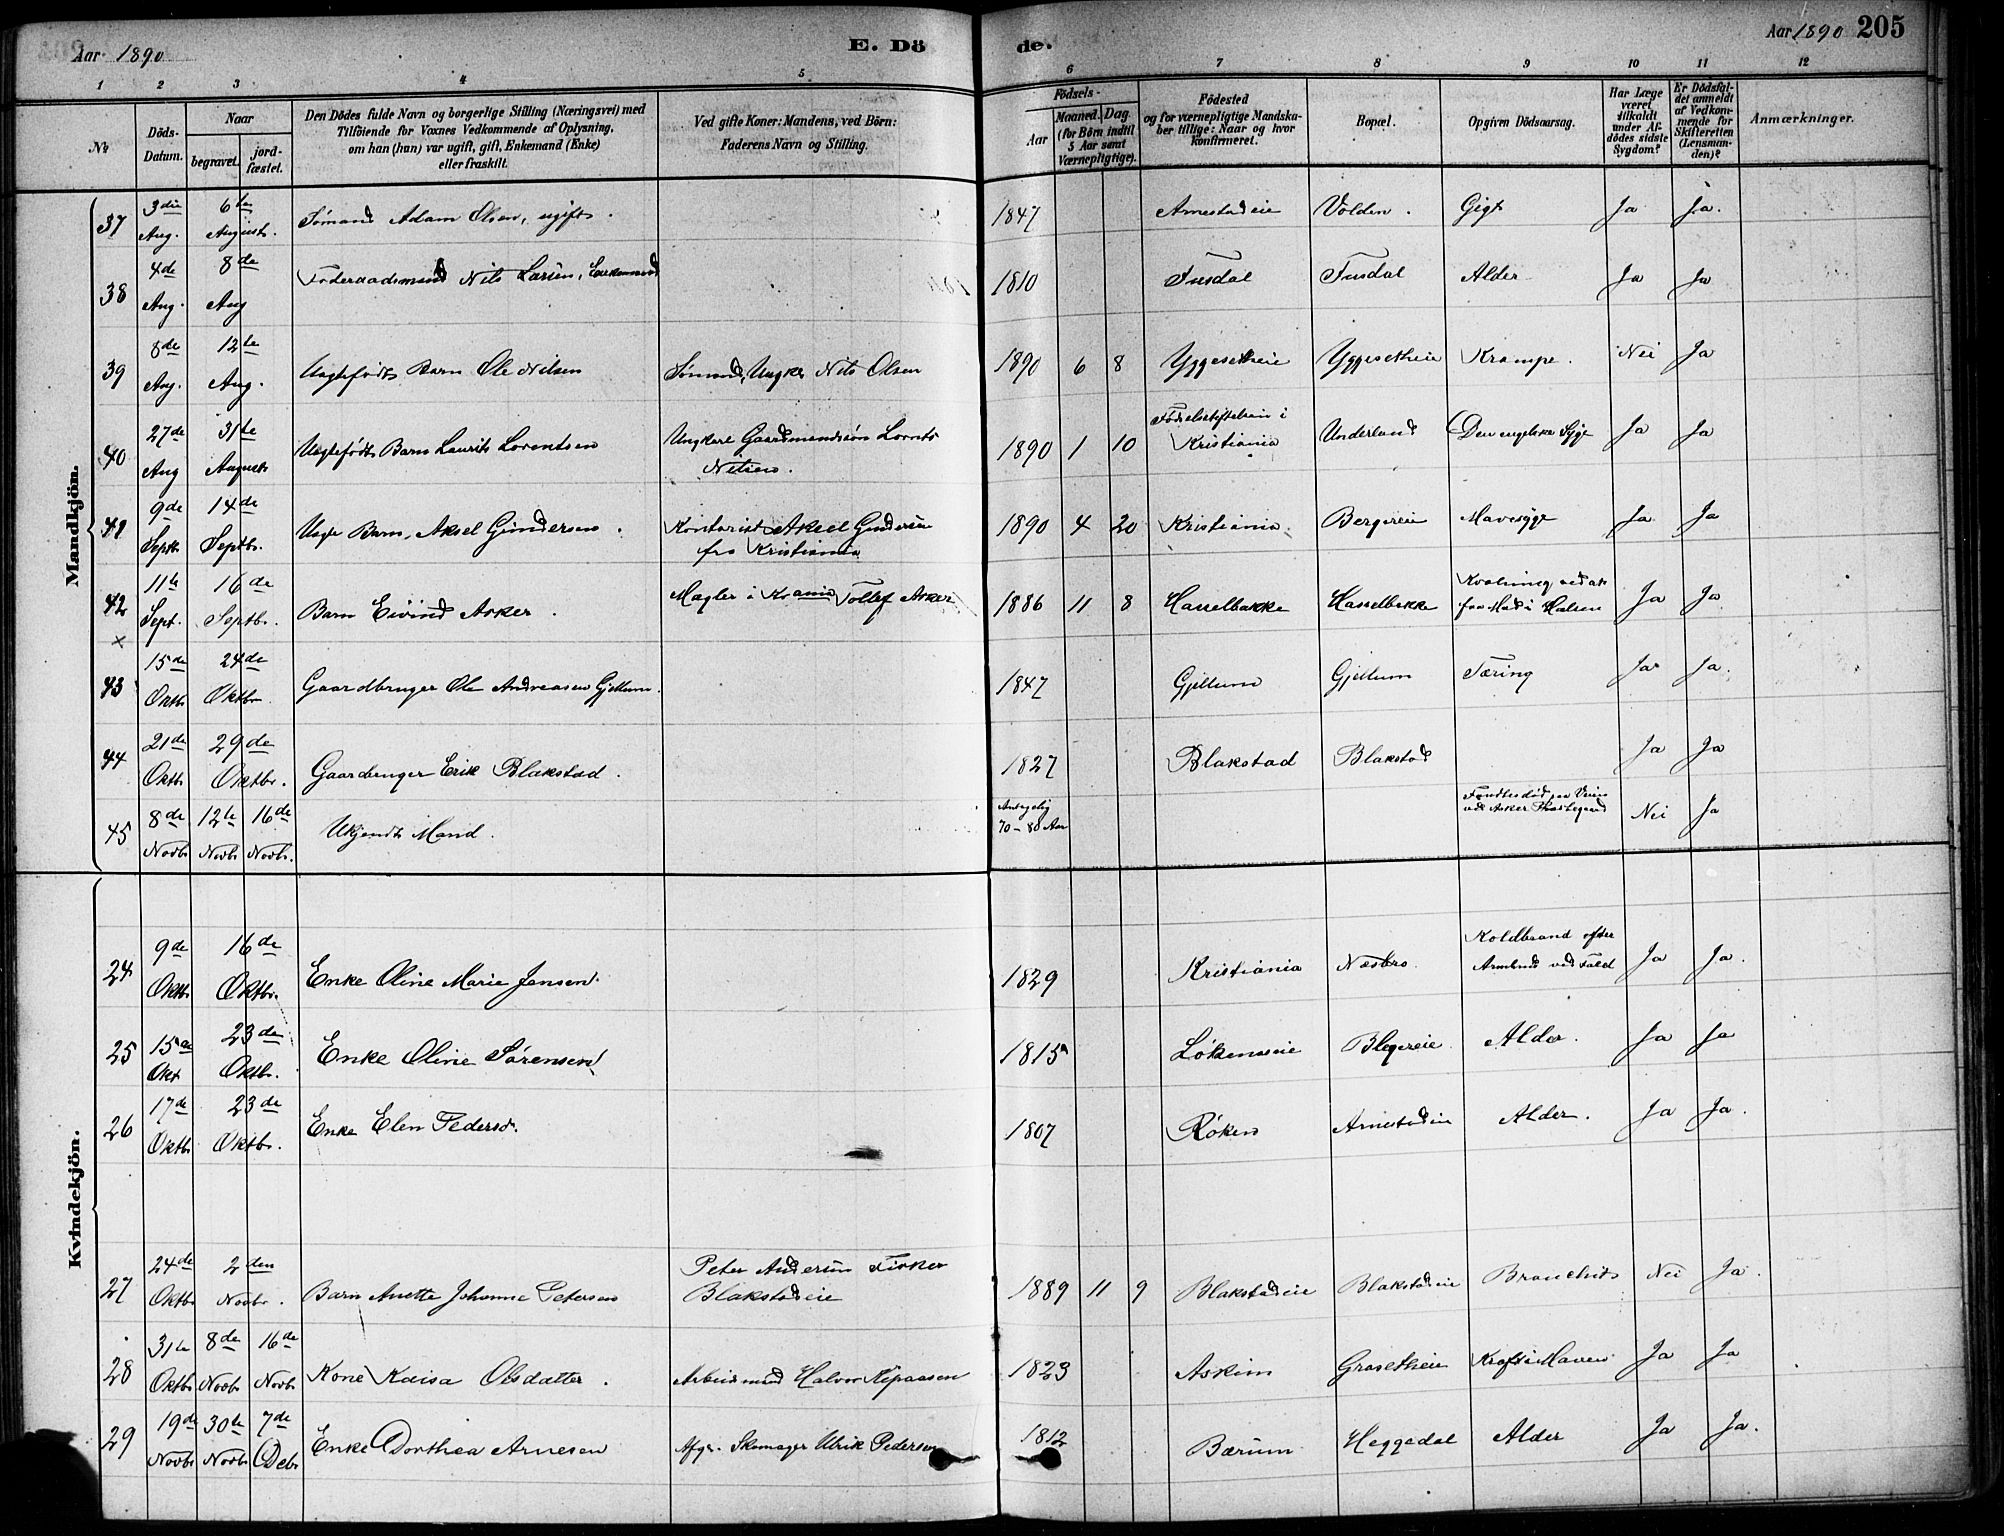 Aar 1890
E. Dö
de.
Aar 1890 205
1 2 3 4 5 6 7 8 9 10 11 12
№
Döds-Datum.
Naar
begravet.
jord-fæstet.
Den Dödes fulde Navn og borgerlige Stilling (Næringsvei) med Tilföiende for Voxnes Vedkommende af Oplysning, om han (hun) var ugift, gift, Enkemand (Enke) eller fraskilt.
Ved gifte Koner: Mandens, ved Börn: Faderens Navn og Stilling.
Födsels-
Aar
Maaned. Dag
(for Börn indtil 5 Aar samt Værnepligtige).
Födested og for værnepligtige Mandskaber tillige: Naar og hvor konfirmeret.
Bopæl.
Opgiven Dödsaarsag.
Har Læge været tilkaldt under Afdödes sidste Sygdom?
Er Dödsfaldet anmeldt af Vedkommende for Skifteretten (Lensmanden)?
Anmærkninger.
Mandkjön.
37 3die Aug. 6te August. Sømand Adam Olsen, ugift. 1847 Arnestadeie Volden. Gigt Ja Ja.
38 4de Aug. 8de Aug Føderaadsmand Nils Larsen, Enkemand 1810 Tusdal Tusdal Alder Ja Ja
39 8de Aug. 12te Aug. Uægtefødt Barn Ole Nilsen Sømand, Ungkar Nils Olsen 1890 6 8 Yggesetheie Yggesetheie Krampe. Nei Ja
40 27de Aug 31te August Uægtefødt Barn Laurits Lorentsen Ungkarl Gaardmandssøn Lornts Nilsen. 1890 1 10 Fødselsstiftelsen i Kristiania Underland Den engelske Syge Ja Ja
41 9de Septb 14de Septbr. Uægte Barn, Aksel Gundersen. Kontorist Aksel Gundersen fra Kristiania 1890 4 20 Kristiania Bergereie Mavesyge Ja Ja
42 × 11te Sept. 16de Septbr. Barn Eivind Asker. Mægler i Krania Tollef Asker 1886 11 8 Hasselbakke Hasselbakke Kvælning ved at faa Mad i Halsen Ja Ja
43 15de Oktb 24de Oktbr Gaardbruger Ole Andreasen Gjellum. 1847 Gjellum Gjellum Tæring Ja Ja.
44 21de Oktb 29de Oktbr. Gaardbruger Erik Blakstad. 1827 Blakstad Blakstad Ja Ja
45 8de Novbr 12te Novbr 16de Novbr. Ukjendt Mand. Antagelig 70-80 Aar Fundtes død paa Veien ved Asker Præstegaard Nei Ja
Kvindekjön.
24 9de Oktbr 16de Oktbr. Enke Oline Marie Jensen. 1829 Kristiania Næsbro Koldbrand efter Armbrud ved Fald Ja Ja.
25 15de Okt 23de Oktbr. Enke Oline Sørensen 1815 Løkenseie Blegereie Alder. Ja Ja
26 17de Oktbr 23de Oktbr. Enke Elen Pedersd. 1807 Røken Arnestadeie Alder. Ja Ja.
27 24de Oktbr 2den Novbr. Barn Anette Johanne Petersen Peter Andersen Fisker Blakstadeie 1889 11 9 Blakstadeie Blakstadeie Bronchits Nei Ja.
28 31te Oktbr 8de Novbr 16de Novbr Kone Kaisa Olsdatter. Arbeidsmand Halvor 1823 Askim Grosetheie Kræft i Maven Ja Ja
29 19de Novbr 30te Novbr 7de Debr Enke Dorthea Arnesen Afgr. Skomager Ulrik Pedersen 1812 Bærum Heggedal Alder Ja Ja.